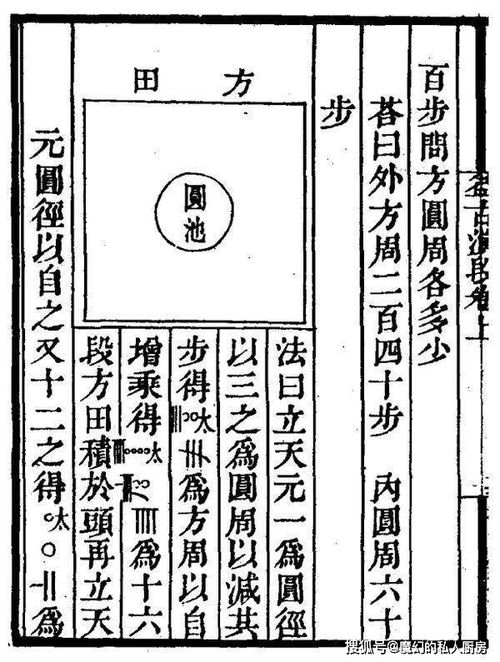 百步問方圓周各多少
荅曰外方周二百四十步　內圓周六十
步
方田
圓池
法曰立天元一爲圓徑
以三之爲圓周以減共
步得太爲方周以自
增乘得太爲十六
段方田積於頭再立天
元圓徑以自之又十二之得太〇爲
搜狐号@魔幻的私人厨房